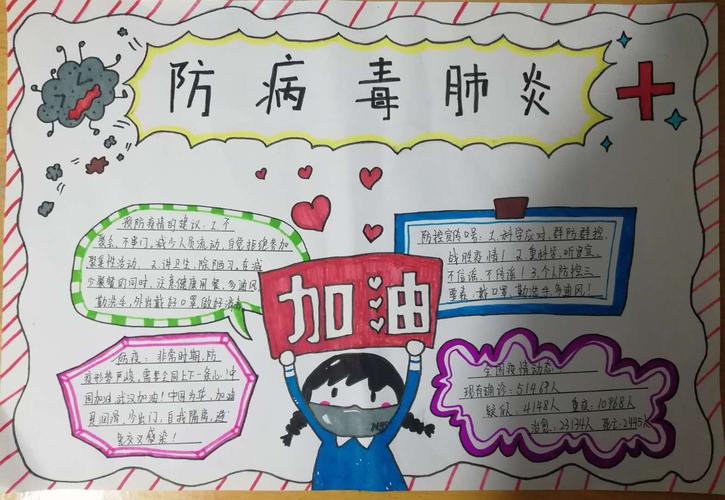 防病毒肺炎
预防疫情的建议:1.不
聚会,不串门,减少人员流动,自觉拒绝参加
聚集性活动. 2.讲卫生,除陋习.在减
少聚餐的同时,注意健康用餐,多通风
勤洗手,外出戴好口罩,做好
防控宣传口号:1.科学应对,群防群控
战胜疫情! 2.重科学,听官宣,
不信谣,不传谣! 3.个人防控三
要素:戴口罩,勤洗手,多通风!
加油
防疫:非常时期,防
疫形势严峻,需要全国上下一条心!中
国加油,武汉加油!中国,加油
少出门,自我隔离,避
免交叉感染!
全国疫情动态
现有确诊:51463人
疑似:4148人 重症:10968人
治愈:23134人 死亡:2445人
N95